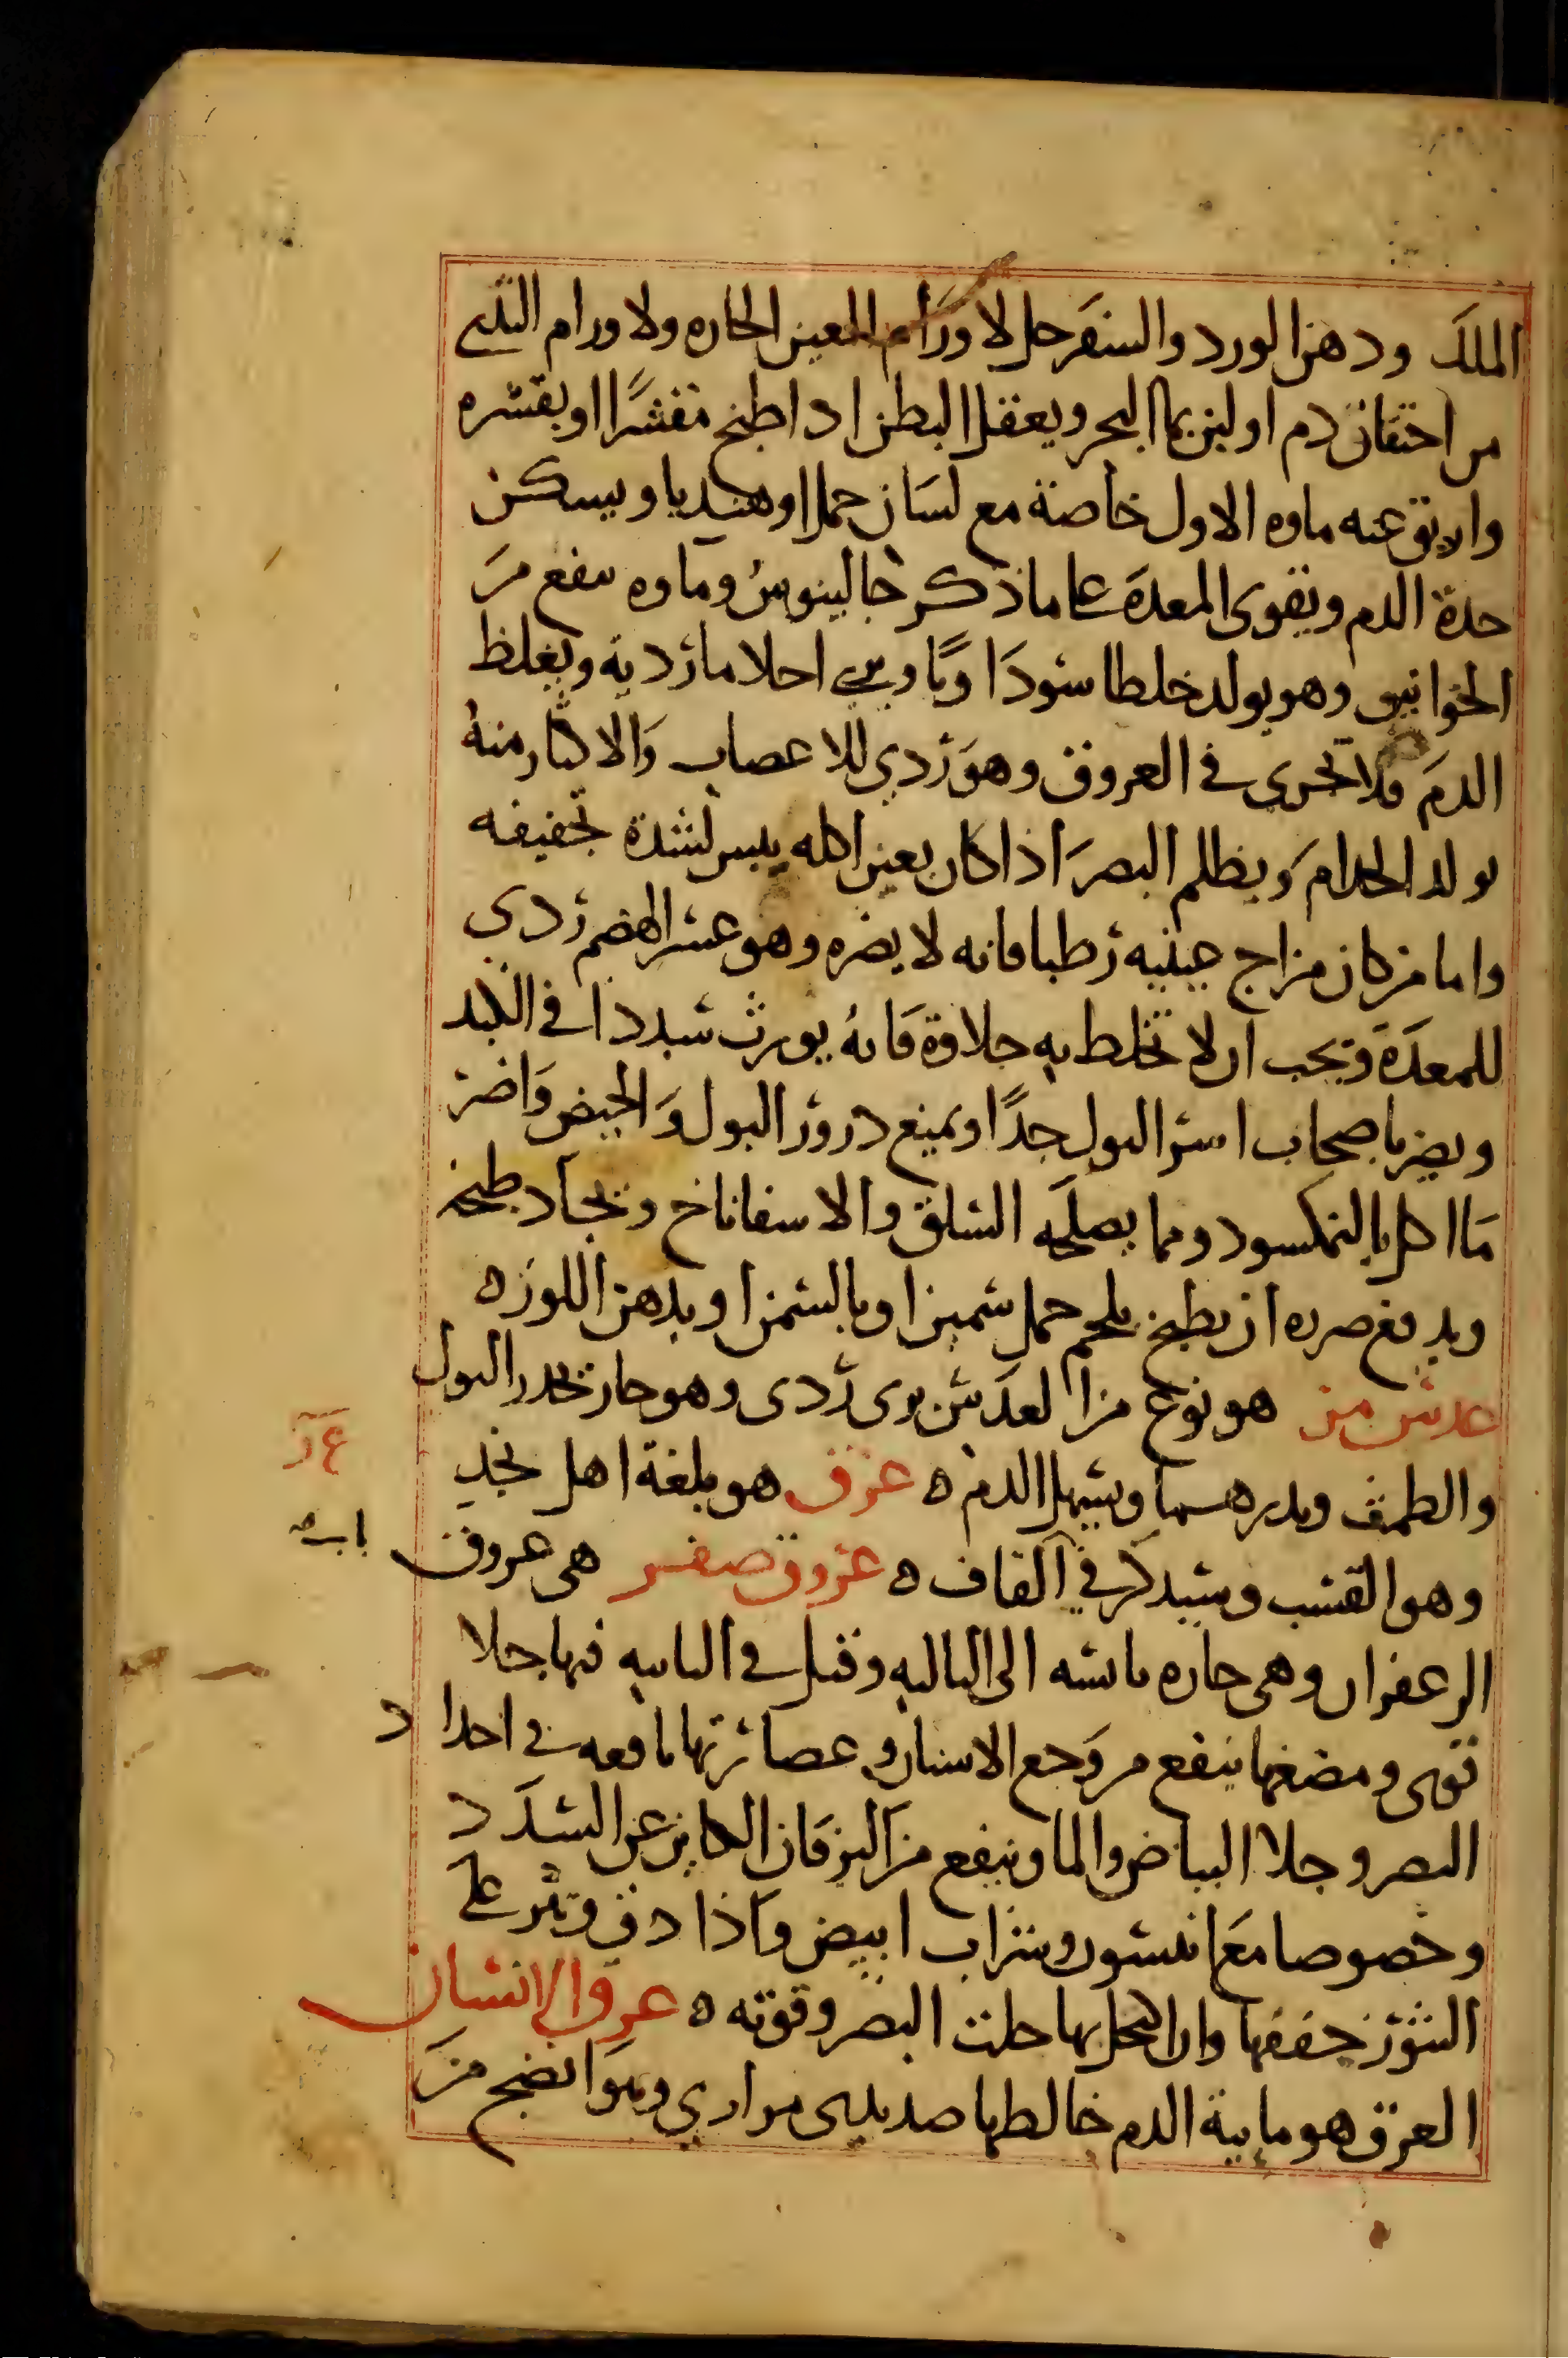 الملك ودهن الورد والسفرجل لاورام العين الحاره ولاورام الثدى
من احتقان دم او لبن بما البحر ويعقل البطن اذا طبخ مقشرًا او بقشره
واريق عنه ماوه الاول خاصة مع لسان حمل او هنديا ويسكن
حدة الدم ويقوى المعدة على ما ذكر جالينوس وماوه ينفع من
الخوانيق وهو يولد خلطا سوداويًا ويرى احلاما ردية ويغلظ
الدم فلا يجرى في العروق وهو ردي للاعصاب والاكثار منه
يولد الجدام ويظلم البصر اذا كان بعين اكله يبس لشدة تجفيفه
واما من كان مزاج عينيه رطبا فانه لا يضره وهو عسر الهضم ردي
للمعدة ويجب ان لا تخلط به حلاوة فانه يورث سددا في الكبد
ويضر باصحاب اسر البول جدًا ويمنع درور البول والحيض واضر
ما اكل بالنمكسود ومما يصلحه السلق والاسفاناخ ويجاد طبخه
ويدفع ضرره ان يطبخ بلحم حمل سمين او بالسمن او بدهن اللوز ه
عدس مر هو نوع من العدس برى ردى وهو حار يحدر البول
والطمث ويدرهما ويسهل الدم ه عزف هو بلغة اهل نجد
ع ر
وهو القسب وسيذكر في القاف ه عروق صفر هى عروق
الزعفران وهى حاره يابسه الى الثالثه وقيل في الثانيه فيها جلا
قوى ومضغها ينفع من وجع الاسنان وعصارتها نافعه في احداد
البصر وجلا البياض والما وينفع من اليرقان الكاين عن السدد
وخصوصا مع انيسون وشراب ابيض واذا دق وذر على
البثور جففها وان اكتحل بها جلت البصر وقوته ه عرق الانسان
العرق هو مايية الدم خالطها صديدى مراري وهو انضج من